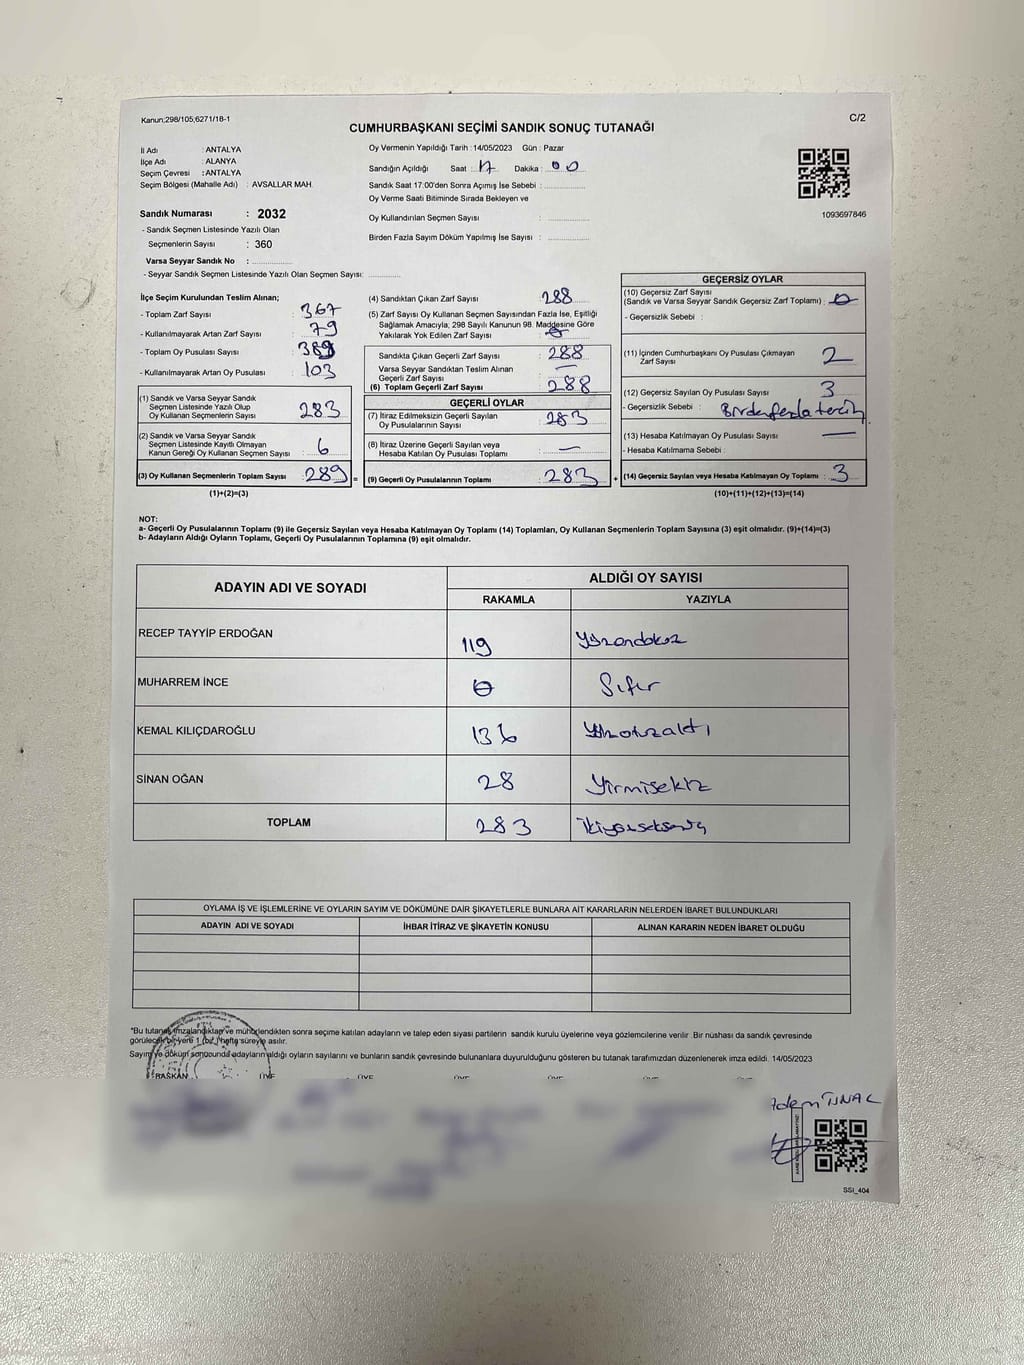 Kanun;298/105;6271/18-1
C/2
CUMHURBAŞKANI SEÇİMİ SANDIK SONUÇ TUTANAĞI
İl Adı : ANTALYA
İlçe Adı : ALANYA
Seçim Çevresi : ANTALYA
Seçim Bölgesi (Mahalle Adı) : AVSALLAR MAH.
Sandık Numarası : 2032
- Sandık Seçmen Listesinde Yazılı Olan
Seçmenlerin Sayısı : 360
Varsa Seyyar Sandık No :
- Seyyar Sandık Seçmen Listesinde Yazılı Olan Seçmen Sayısı:
Oy Vermenin Yapıldığı Tarih : 14/05/2023 Gün : Pazar
Sandığın Açıldığı Saat : 17 Dakika : 00
Sandık Saat 17:00'den Sonra Açımış İse Sebebi :
Oy Verme Saati Bitiminde Sırada Bekleyen ve
Oy Kullandırılan Seçmen Sayısı :
Birden Fazla Sayım Döküm Yapılmış İse Sayısı :
1093697846
İlçe Seçim Kurulundan Teslim Alınan;
- Toplam Zarf Sayısı : 367
- Kullanılmayarak Artan Zarf Sayısı : 79
- Toplam Oy Pusulası Sayısı :
- Kullanılmayarak Artan Oy Pusulası : 103
(1) Sandık ve Varsa Seyyar Sandık
Seçmen Listesinde Yazılı Olup
Oy Kullanan Seçmenlerin Sayısı : 283
(2) Sandık ve Varsa Seyyar Sandık
Seçmen Listesinde Kayıtlı Olmayan
Kanun Gereği Oy Kullanan Seçmen Sayısı : 6
(3) Oy Kullanan Seçmenlerin Toplam Sayısı : 289 =
(1)+(2)=(3)
(4) Sandıktan Çıkan Zarf Sayısı : 288
(5) Zarf Sayısı Oy Kullanan Seçmen Sayısından Fazla İse, Eşitliği
Sağlamak Amacıyla; 298 Sayılı Kanunun 98. Maddesine Göre
Yakılarak Yok Edilen Zarf Sayısı : 0
Sandıkta Çıkan Geçerli Zarf Sayısı : 288
Varsa Seyyar Sandıktan Teslim Alınan
Geçerli Zarf Sayısı : —
(6) Toplam Geçerli Zarf Sayısı : 288
GEÇERLİ OYLAR
(7) İtiraz Edilmeksizin Geçerli Sayılan
Oy Pusulalarının Sayısı : 283
(8) İtiraz Üzerine Geçerli Sayılan veya
Hesaba Katılan Oy Pusulası Toplamı : —
(9) Geçerli Oy Pusulalarının Toplamı : 283 +
GEÇERSİZ OYLAR
(10) Geçersiz Zarf Sayısı
(Sandık ve Varsa Seyyar Sandık Geçersiz Zarf Toplamı) : 0
- Geçersizlik Sebebi :
(11) İçinden Cumhurbaşkanı Oy Pusulası Çıkmayan
Zarf Sayısı : 2
(12) Geçersiz Sayılan Oy Pusulası Sayısı : 3
- Geçersizlik Sebebi : Birden fazla tercih
(13) Hesaba Katılmayan Oy Pusulası Sayısı : —
- Hesaba Katılmama Sebebi :
(14) Geçersiz Sayılan veya Hesaba Katılmayan Oy Toplamı : 3
(10)+(11)+(12)+(13)=(14)
NOT:
a- Geçerli Oy Pusulalarının Toplamı (9) ile Geçersiz Sayılan veya Hesaba Katılmayan Oy Toplamı (14) Toplamları, Oy Kullanan Seçmenlerin Toplam Sayısına (3) eşit olmalıdır. (9)+(14)=(3)
b- Adayların Aldığı Oyların Toplamı, Geçerli Oy Pusulalarının Toplamına (9) eşit olmalıdır.
ADAYIN ADI VE SOYADI
ALDIĞI OY SAYISI
RAKAMLA YAZIYLA
RECEP TAYYİP ERDOĞAN 119 Yüzondokuz
MUHARREM İNCE 0 Sıfır
KEMAL KILIÇDAROĞLU 136 Yüzotuzaltı
SİNAN OĞAN 28 Yirmisekiz
TOPLAM 283 ikiyüzseksenüç
OYLAMA İŞ VE İŞLEMLERİNE VE OYLARIN SAYIM VE DÖKÜMÜNE DAİR ŞİKAYETLERLE BUNLARA AİT KARARLARIN NELERDEN İBARET BULUNDUKLARI
ADAYIN ADI VE SOYADI İHBAR İTİRAZ VE ŞİKAYETİN KONUSU ALINAN KARARIN NEDEN İBARET OLDUĞU
*Bu tutanak imzalandıktan ve mühürlendikten sonra seçime katılan adayların ve talep eden siyasi partilerin sandık kurulu üyelerine veya gözlemcilerine verilir. Bir nüshası da sandık çevresinde
görülecek bir yere 1 (bir) hafta süreyle asılır.
Sayım ve döküm sonucunda adayların aldığı oyların sayılarını ve bunların sandık çevresinde bulunanlara duyurulduğunu gösteren bu tutanak tarafımızdan düzenlenerek imza edildi. 14/05/2023
BAŞKAN ÜYE ÜYE ÜYE ÜYE ÜYE ÜYE
Adem ÜNAL
SSI_404